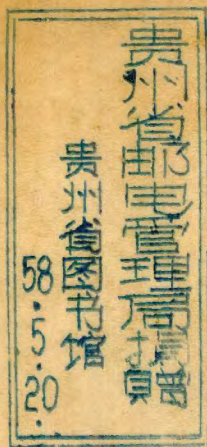 贵州省邮电管理局捐赠
贵州省图书馆
58.5.20.